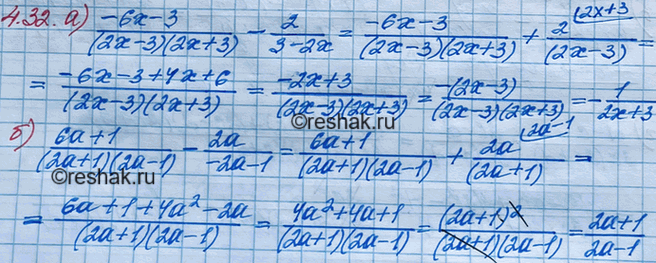 4.32. а) (-6x-3)/((2x-3)(2x+3)) - 2/(3-2x) = (-6x-3)/((2x-3)(2x+3)) + 2^(2x+3/(2x-3) =
= (-6x-3+4x+6)/((2x-3)(2x+3)) = (-2x+3)/((2x-3)(2x+3)) = -(2x-3)/((2x-3)(2x+3)) = -1/(2x+3)
©reshak.ru
б) (6a+1)/((2a+1)(2a-1)) - 2a/(-2a-1) = (6a+1)/((2a+1)(2a-1)) + 2a^(2a-1/(2a+1) =
©reshak.ru
= (6a+1+4a²-2a)/((2a+1)(2a-1)) = (4a²+4a+1)/((2a+1)(2a-1)) = (2a+1)²/((2a+1)(2a-1)) = (2a+1)/(2a-1)